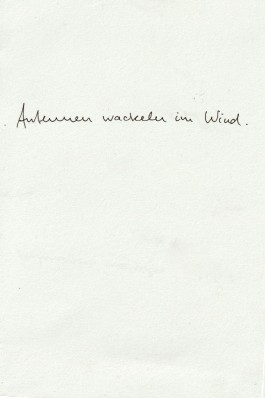 Antennen wackeln im Wind.